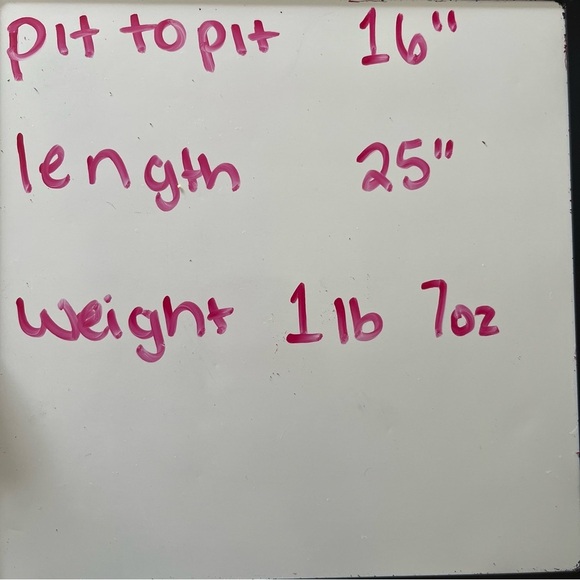 pit to pit 16"
length 25"
weight 1 lb 7oz